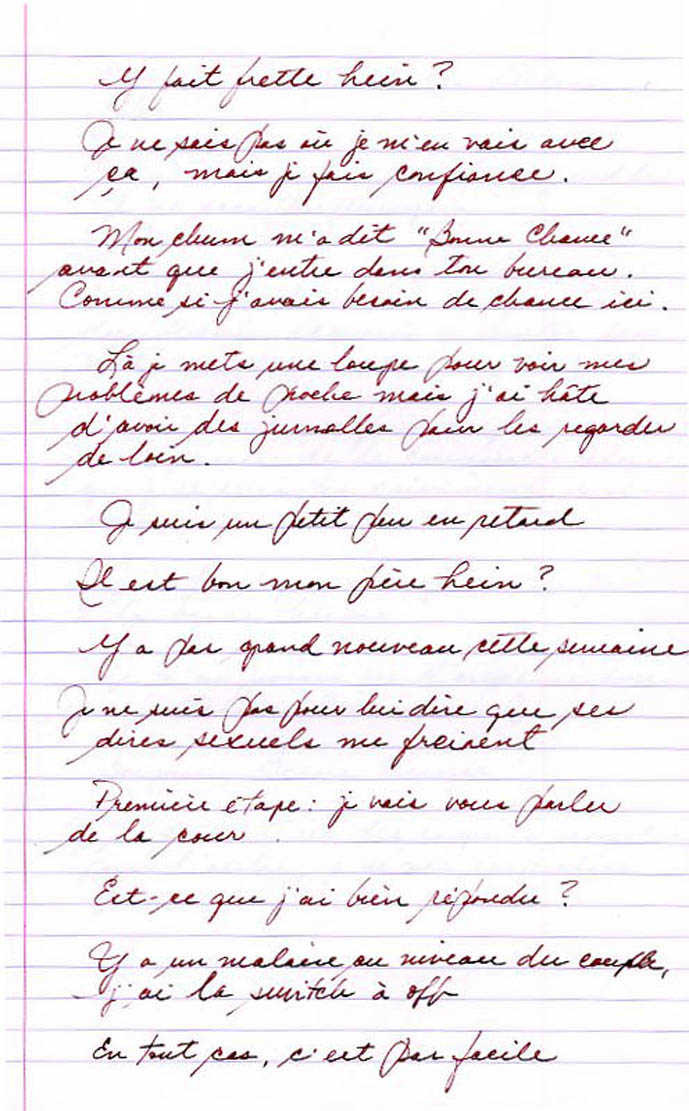 Y fait frette hein ?
Je ne sais pas où je m'en vais avec
ça, mais je fais confiance.
Mon chum m'a dit "Bonne Chance"
avant que j'entre dans ton bureau.
Comme si j'avais besoin de chance ici.
Là je mets une loupe pour voir mes
problèmes de proche mais j'ai hâte
d'avoir des jumelles pour les regarder
de loin.
Je suis un petit peu en retard
Il est bon mon père hein ?
Y a pas grand nouveau cette semaine
Je ne suis pas pour lui dire que ses
dires sexuels me freinent
Première étape : je vais vous parler
de la cour.
Est-ce que j'ai bien répondu ?
Y a un malaise au niveau du couple,
j'ai la switch à off
En tout cas, c'est pas facile